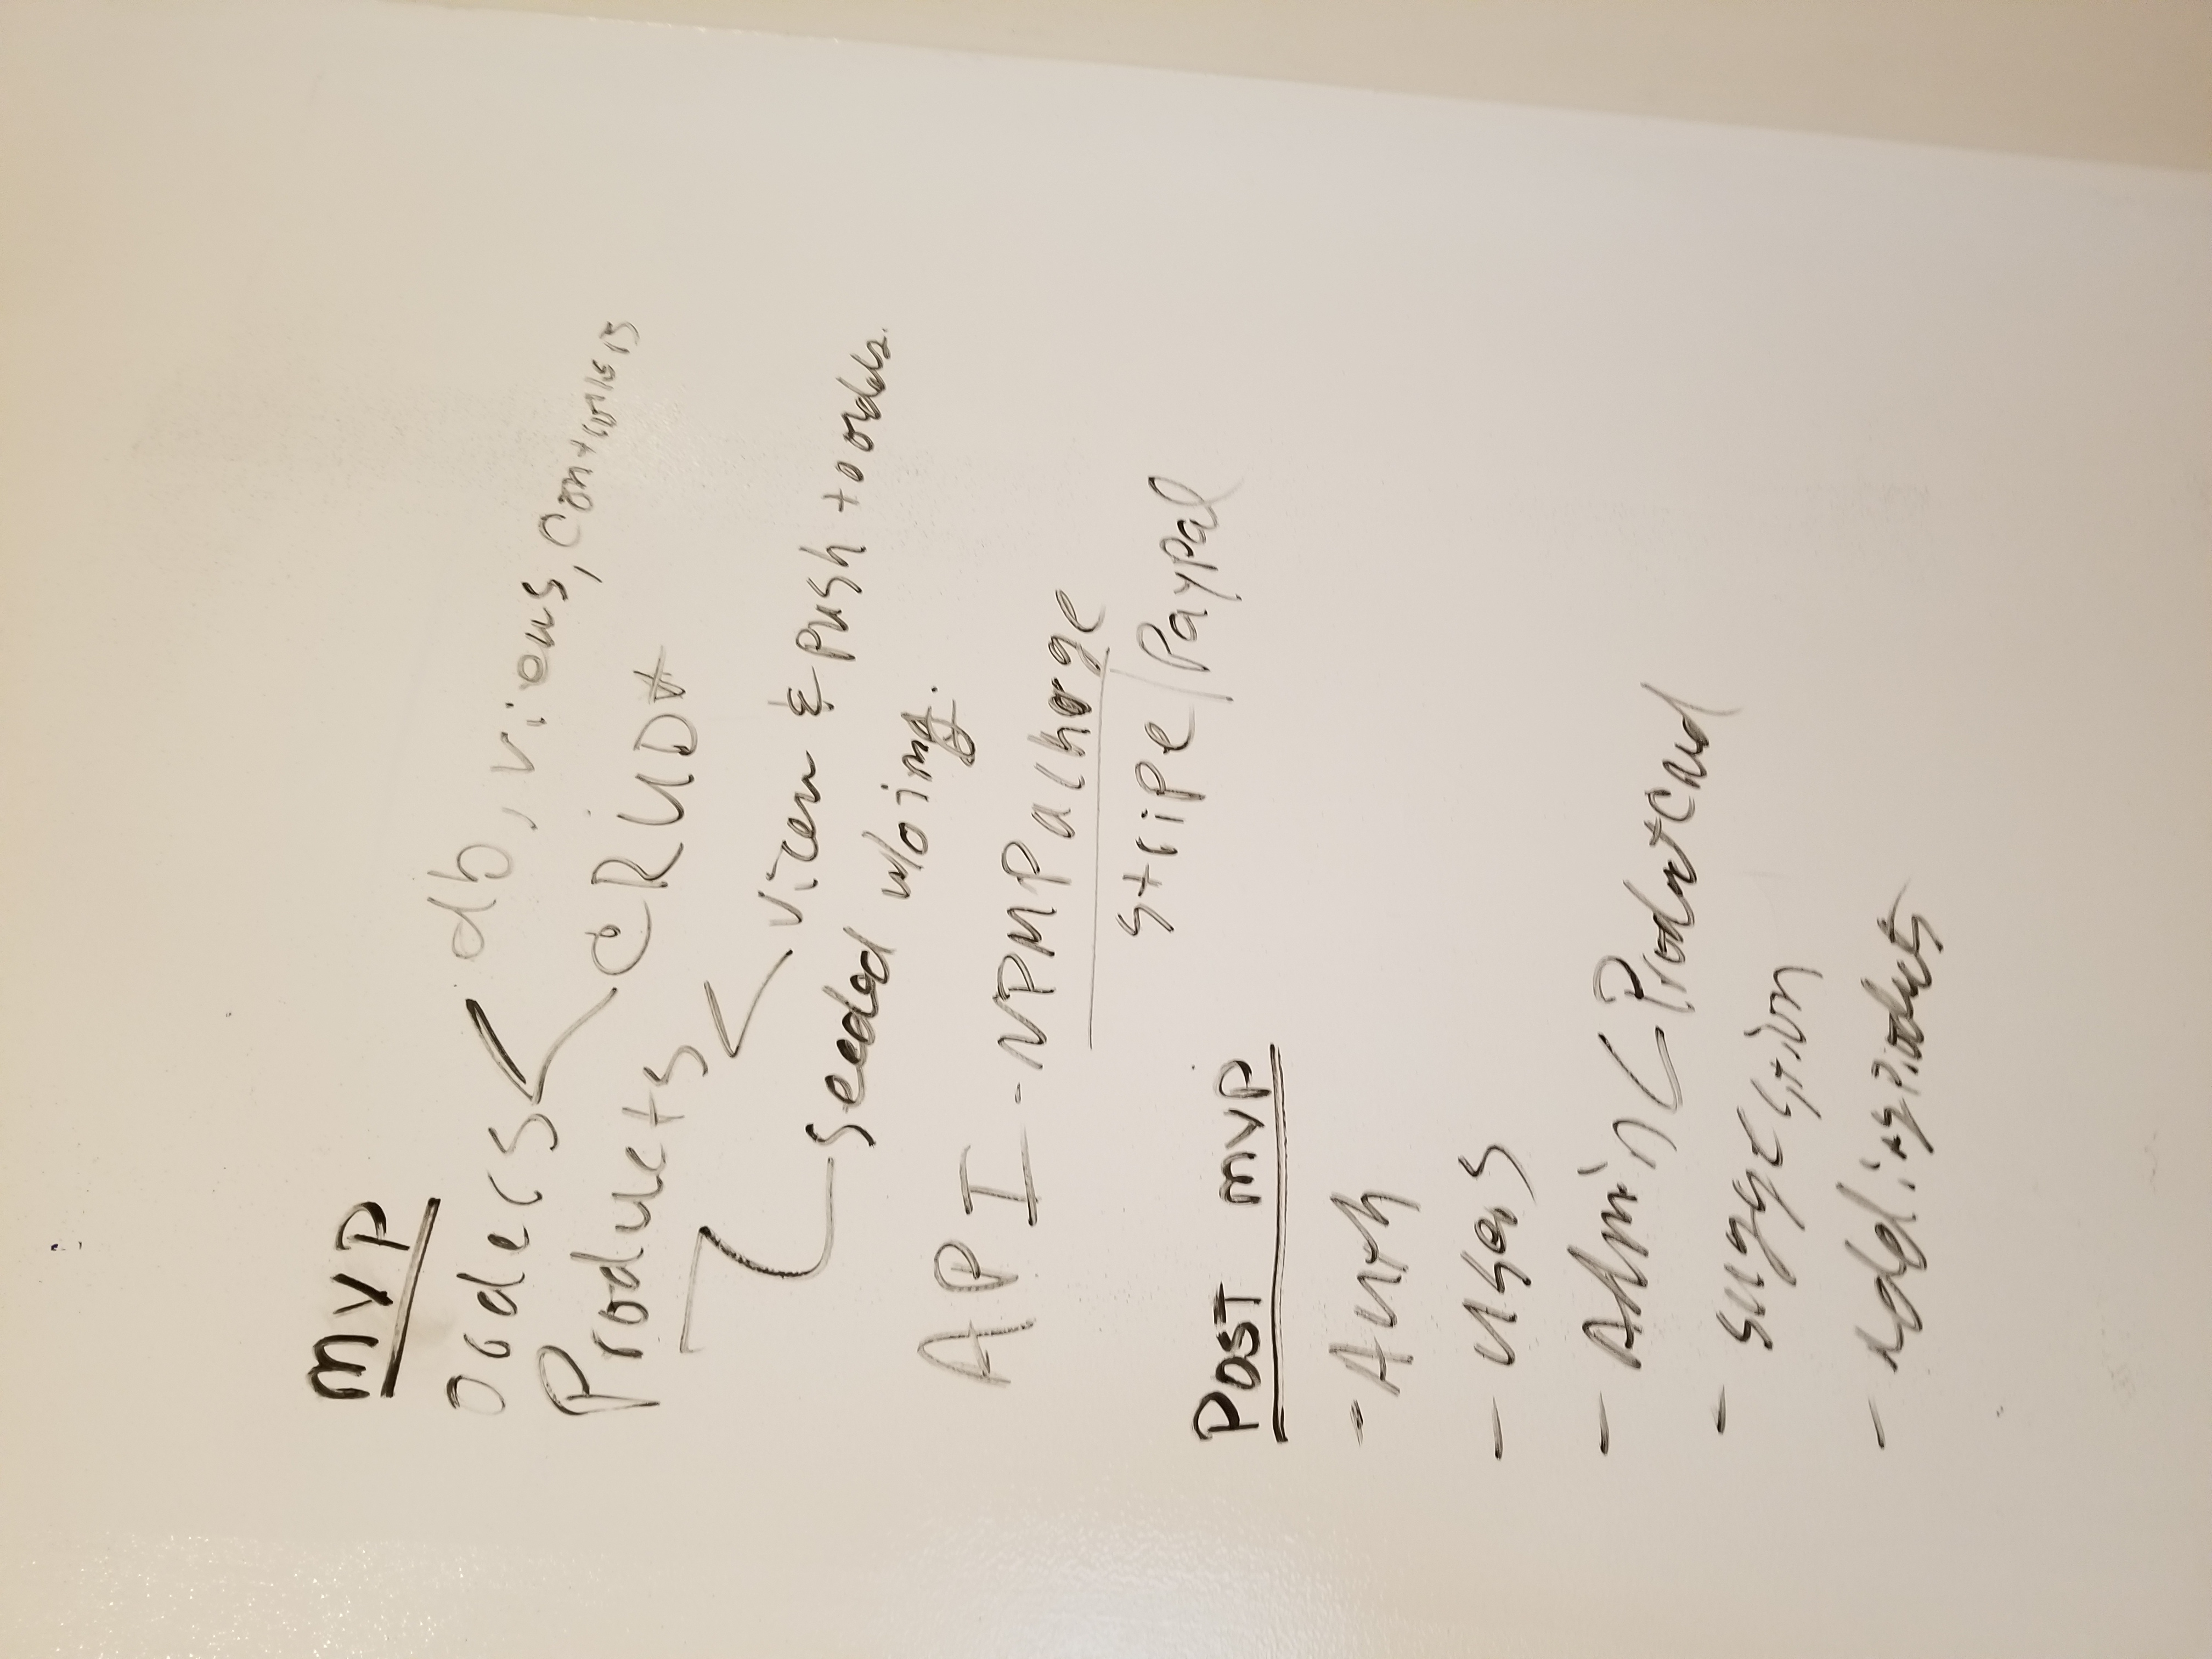 MVP
Orders < db, views, controllers
CRUD*
Products
< view & push to orders.
seeded w/o img.
API - NPM Pacharge
Stripe/Paypal
POST MVP
- Auth
- Users
- Admin < Product Crud
- suggestion
- adding products